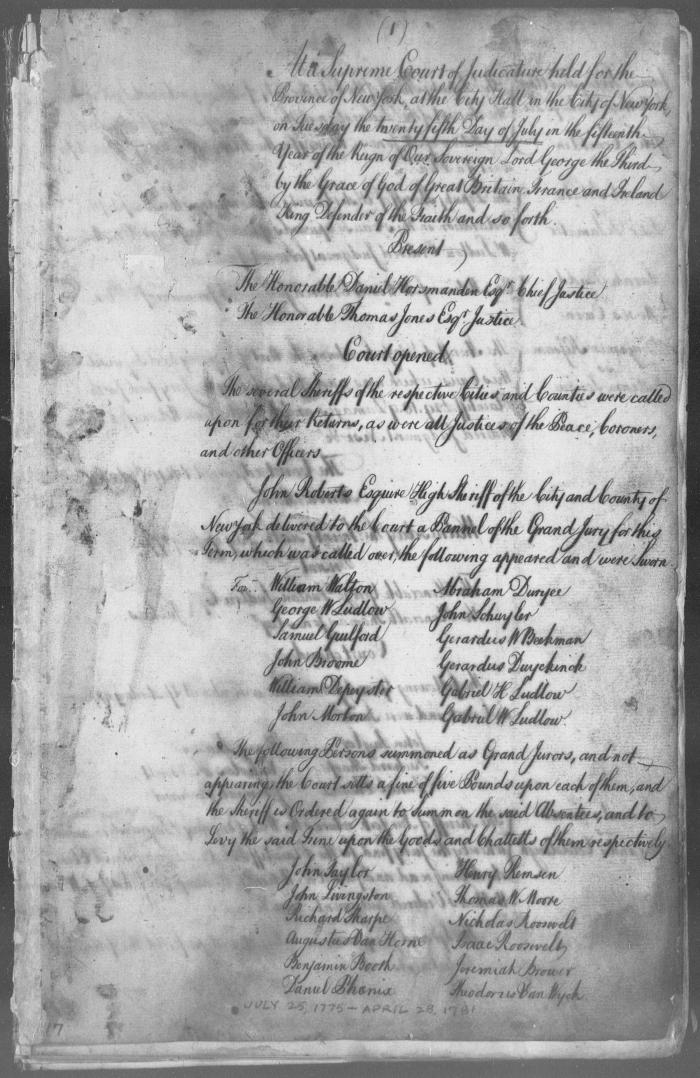 (1)
At a Supreme Court of Judicature held for the
Province of New York, at the City Hall in the City of New York,
on Tuesday the twenty fifth Day of July in the fifteenth
Year of the Reign of Our Sovereign Lord George the Third
by the Grace of God of Great Britain France and Ireland
King Defender of the Faith and so forth.
Present
The Honorable Daniel Horsmanden Esqr. Chief Justice
The Honorable Thomas Jones Esqr. Justice.
Court opened
The several Sheriffs of the respective Cities and Counties were called
upon for their Returns, as were all Justices of the Peace, Coroners,
and other Officers
John Roberts Esquire High Sheriff of the City and County of
New York delivered to the Court a Pannel of the Grand Jury for this
Term, which was called over, the following appeared and were Sworn.
William Walton Abraham Duryee
George W Ludlow John Schuyler
Samuel Guilford Gerardus W Beekman
John Broome Gerardus Duyckinck
William Depeyster Gabriel H Ludlow
John Morton Gabriel W Ludlow.
The following Persons summoned as Grand Jurors, and not
appearing, the Court setts a fine of five Pounds upon each of them, and
the Sheriff is Ordered again to Summon the said Absentees, and to
Levy the said Fine upon the Goods and Chattells of them respectively
John Taylor Henry Remsen
John Livingston Thomas W Moore
Richard Sharpe Nicholas Roosvelt
Augustus Van Horne Isaac Roosvelt
Benjamin Booth Jeremiah Brower
Daniel Phenix Theodorus Van Wyck
JULY 25, 1775 - APRIL 28, 1781